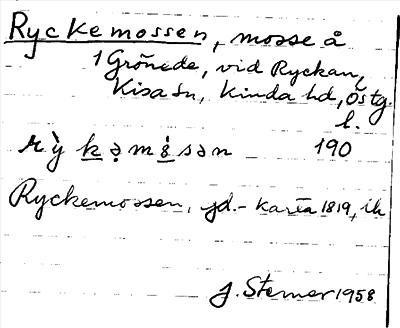 Ryckemossen, mosse å
1 Grönede, vid Ryckan,
Kisa sn, Kinda hd, Östg.
l.
190
Ryckemossen, jd.- karta 1819, ik
J. Sterner 1958